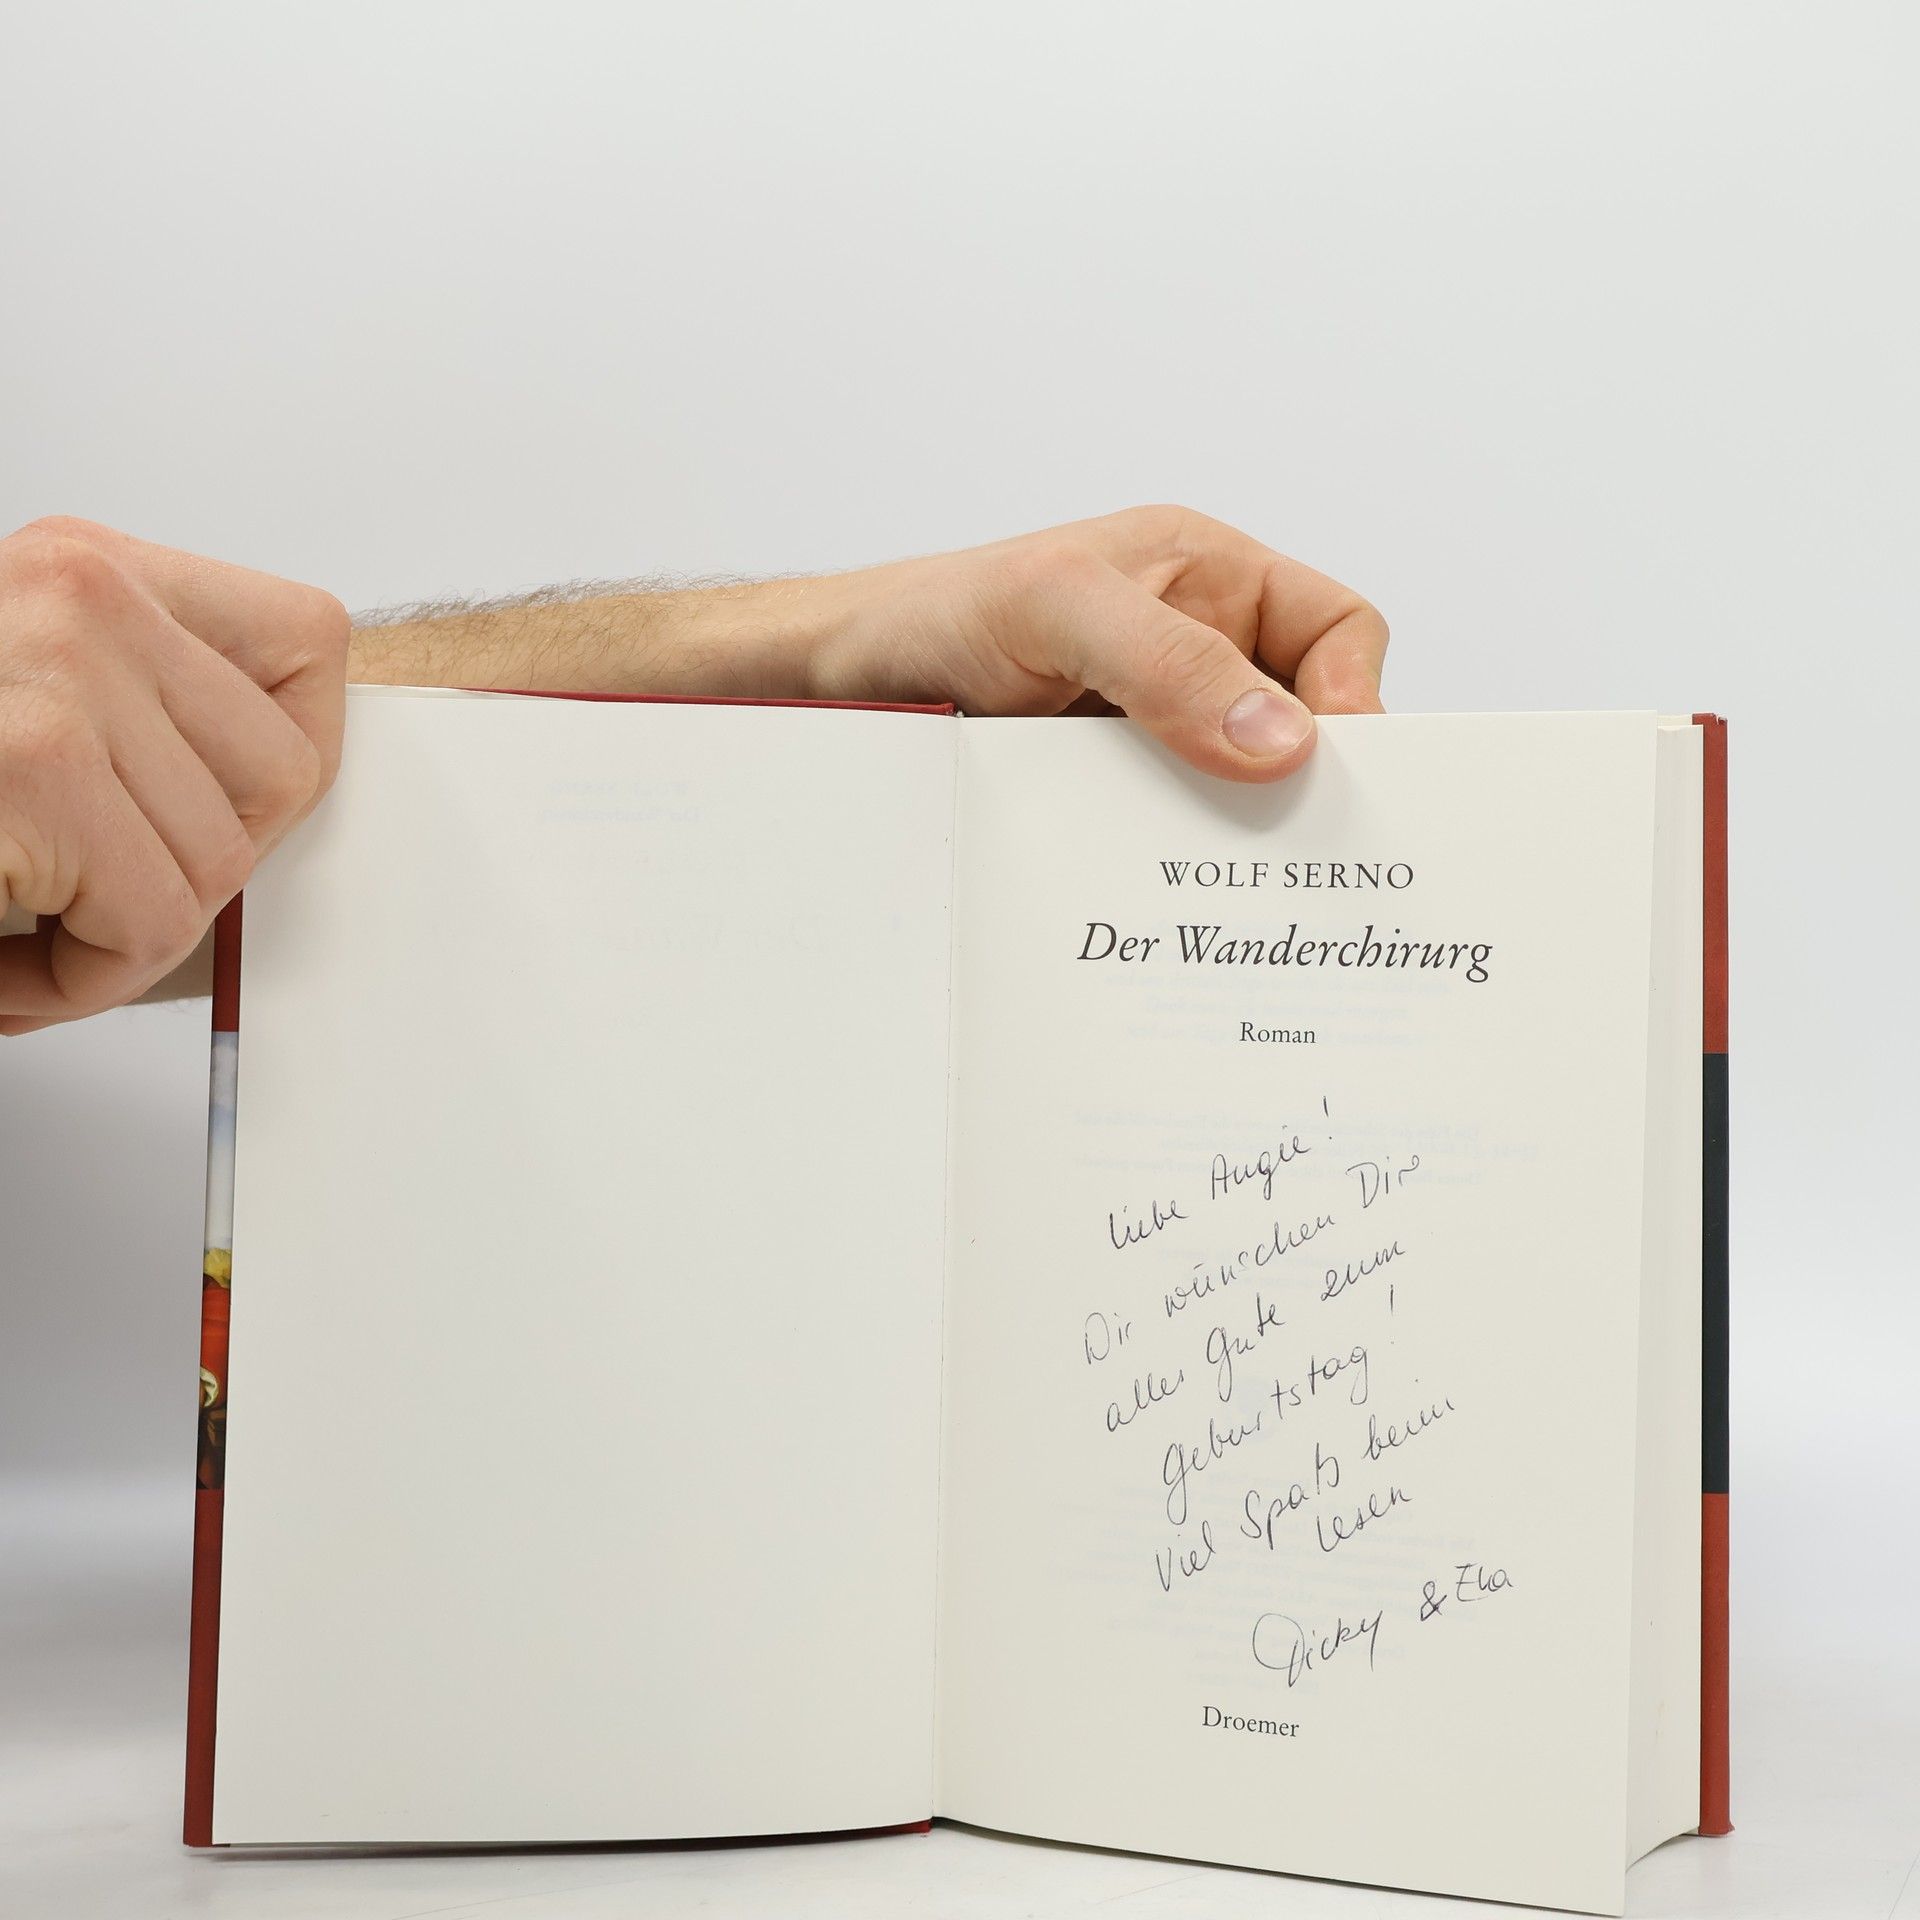 WOLF SERNO
Der Wanderchirurg
Roman
Liebe Angie!
Dir wünschen Dir
alles Gute zum
Geburtstag!
Viel Spaß beim
Lesen
Dicky &
Droemer